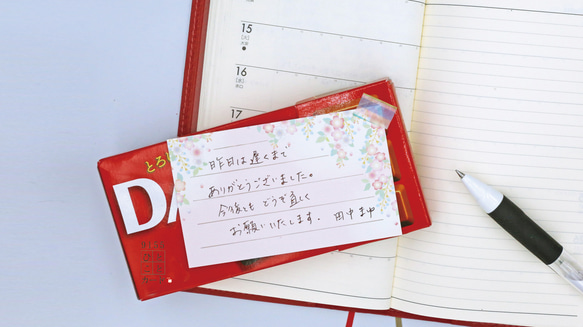 15
[火]
16
[水]
17
とろ
DA
昨日は遅くまで
ありがとうございました。
今後とも どうぞ宜しく
お願いいたします。 田中まゆ